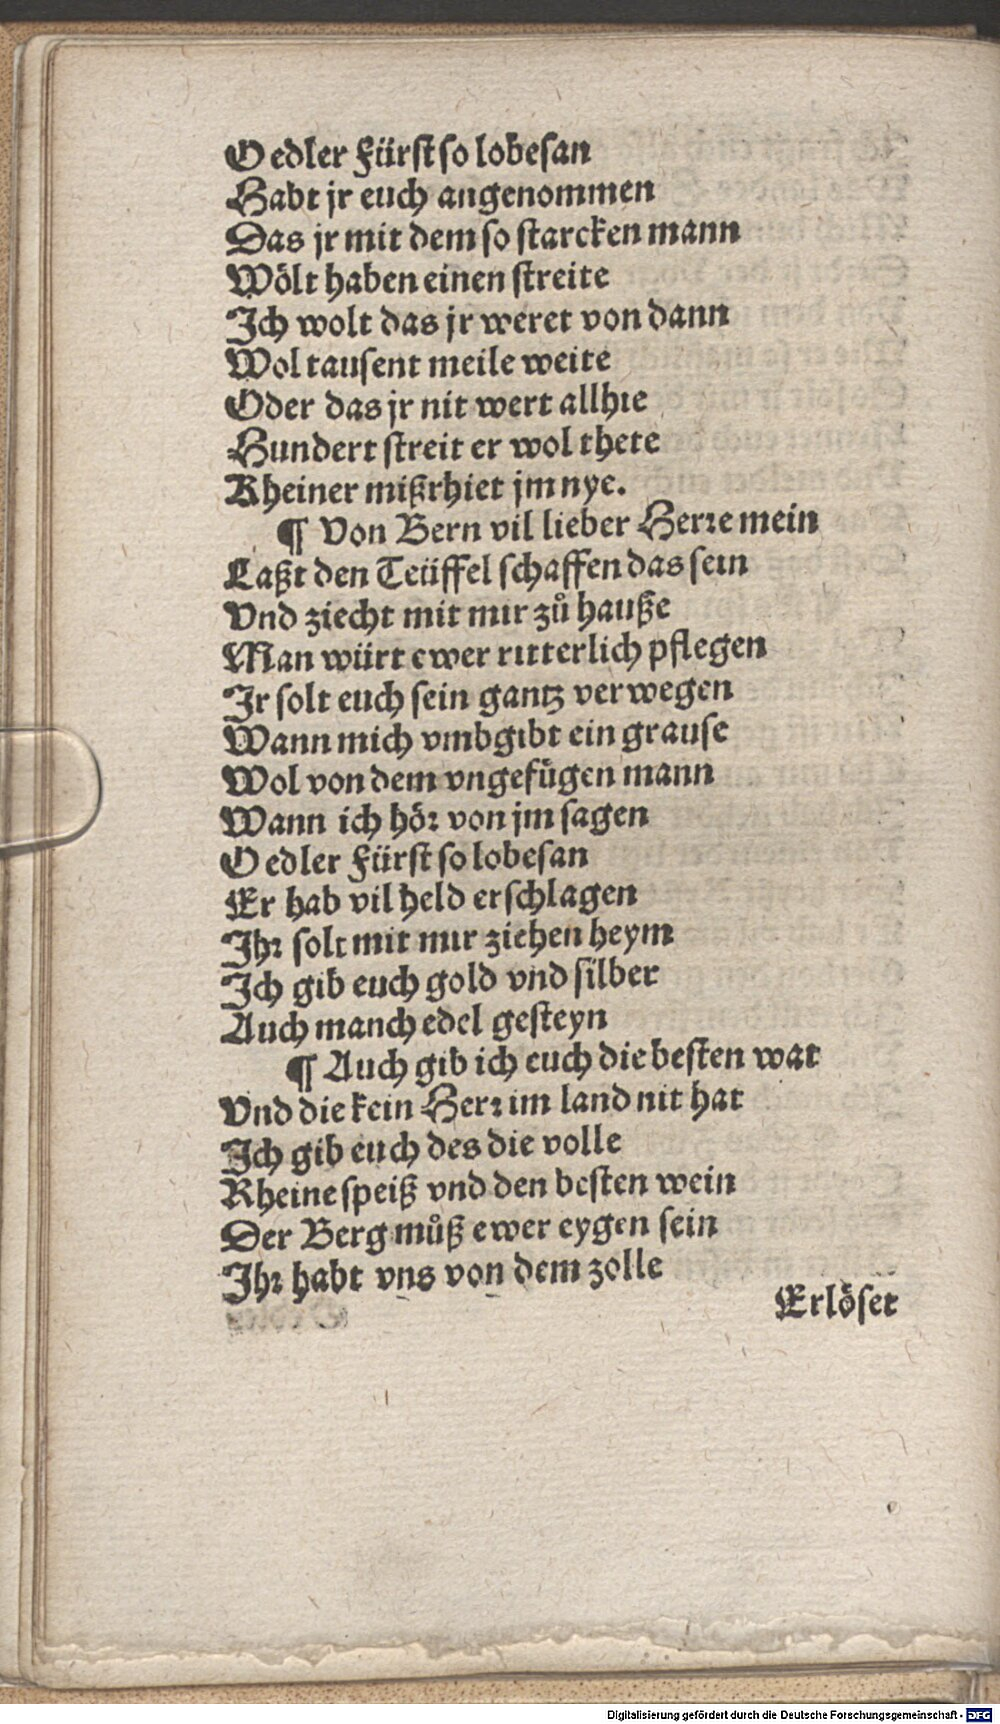 O edler Fürst so lobesan
Habt jr euch angenommen
Das jr mit dem so starcken mann
Wölt haben einen streite
Ich wolt das jr weret von dann
Wol tausent meile weite
Oder das jr nit wert allhie
Hundert streit er wol thete
Kheiner mißrhiet jm nye.
¶ Von Bern vil lieber Herre mein
Laßt den Teüffel schaffen das sein
Vnd ziecht mit mir zů hauße
Man würt ewer ritterlich pflegen
Ir solt euch sein gantz verwegen
Wann mich vmbgibt ein grause
Wol von dem vngefügen mann
Wann ich hör von jm sagen
O edler Fürst so lobesan
Er hab vil held erschlagen
Ihr solt mit mir ziehen heym
Ich gib euch gold vnd silber
Auch manch edel gesteyn
¶ Auch gib ich euch die besten wat
Vnd die kein Herr im land nit hat
Ich gib euch des die volle
Rheine speiß vnd den besten wein
Der Berg můß ewer eygen sein
Ihr habt vns von dem zolle
Erlöset
Digitalisierung gefördert durch die Deutsche Forschungsgemeinschaft - DFG